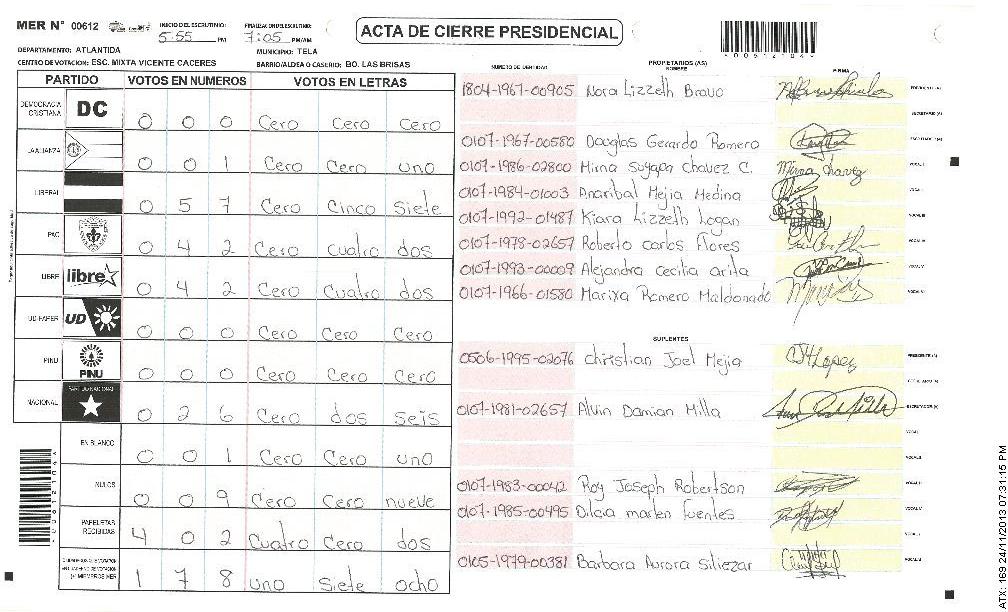 MER N° 00612
INICIO DEL ESCRUTINIO: 5:55 PM
FINALIZACION DEL ESCRUTINIO: 7:05 PM/AM
ACTA DE CIERRE PRESIDENCIAL
DEPARTAMENTO: ATLANTIDA
MUNICIPIO: TELA
CENTRO DE VOTACION: ESC. MIXTA VICENTE CACERES
BARRIO/ALDEA O CASERIO: BO. LAS BRISAS
PARTIDO VOTOS EN NUMEROS VOTOS EN LETRAS
DEMOCRACIA CRISTIANA DC 0 0 0 Cero Cero Cero
LA ALIANZA 0 0 1 Cero Cero uno
LIBERAL 0 5 7 Cero Cinco Siete
PAC 0 4 2 Cero cuatro dos
LIBRE libre 0 4 2 Cero Cuatro dos
UD-FAPER UD 0 0 0 Cero Cero Cero
PINU PINU 0 0 0 Cero Cero Cero
NACIONAL PARTIDO NACIONAL 0 2 6 Cero dos seis
EN BLANCO 0 0 1 Cero Cero uno
NULOS 0 0 9 Cero Cero nueve
PAPELETAS RECIBIDAS 4 0 2 Cuatro Cero dos
1 7 8 uno Siete ocho
NUMERO DE IDENTIDAD
PROPIETARIOS (AS)
NOMBRE
FIRMA
1804-1967-00905 Nora Lizzeth Bravo
0107-1967-00580 Douglas Gerardo Romero
0107-1986-02800 Mirna Suyapa Chavez C. Mirna Chavez
0107-1984-01003 Anaribal Mejia Medina
0107-1992-01487 Kiara Lizzeth Logan
0107-1978-02657 Roberto Carlos Flores
0107-1993-00009 Alejandra cecilia arita
0107-1966-01580 Marixa Romero Maldonado
SUPLENTES
0506-1995-02076 christian Joel Mejia
0107-1981-02657 Alvin Damian Milla
0107-1983-00042 Roy Joseph Robertson
0107-1985-00495 Dilcia marlen fuentes
0105-1979-00381 Barbara Aurora Siliezar
ATX: 169 24/11/2013 07:31:15 PM